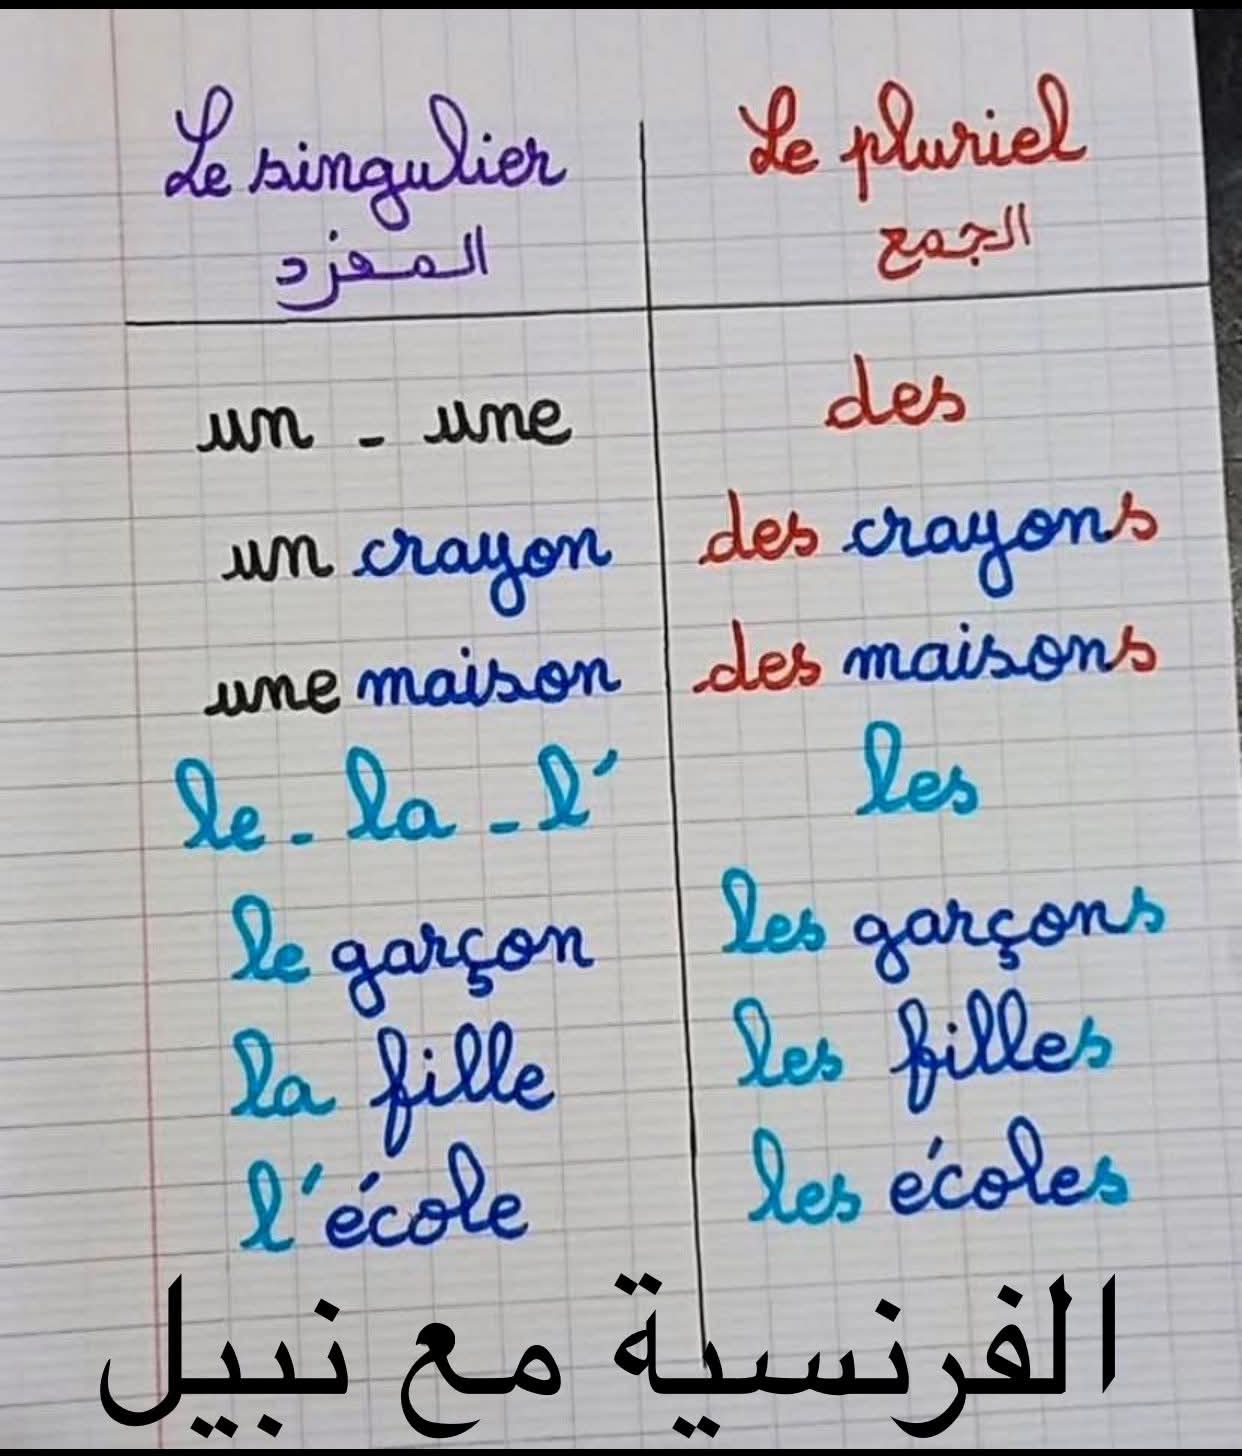 Le singulier | Le pluriel
المفرد | الجمع
un - une | des
un crayon | des crayons
une maison | des maisons
le - la - l' | les
le garçon | les garçons
la fille | les filles
l'école | les écoles
الفرنسية مع نبيل